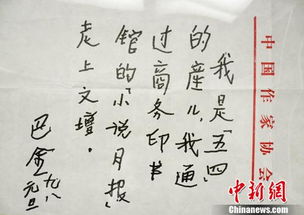 中国作家协会
我是「五四」
的産儿，我通
过商务印书
馆的「小说月报」
走上文壇。
巴金
元旦
中新網
Chinanews.com